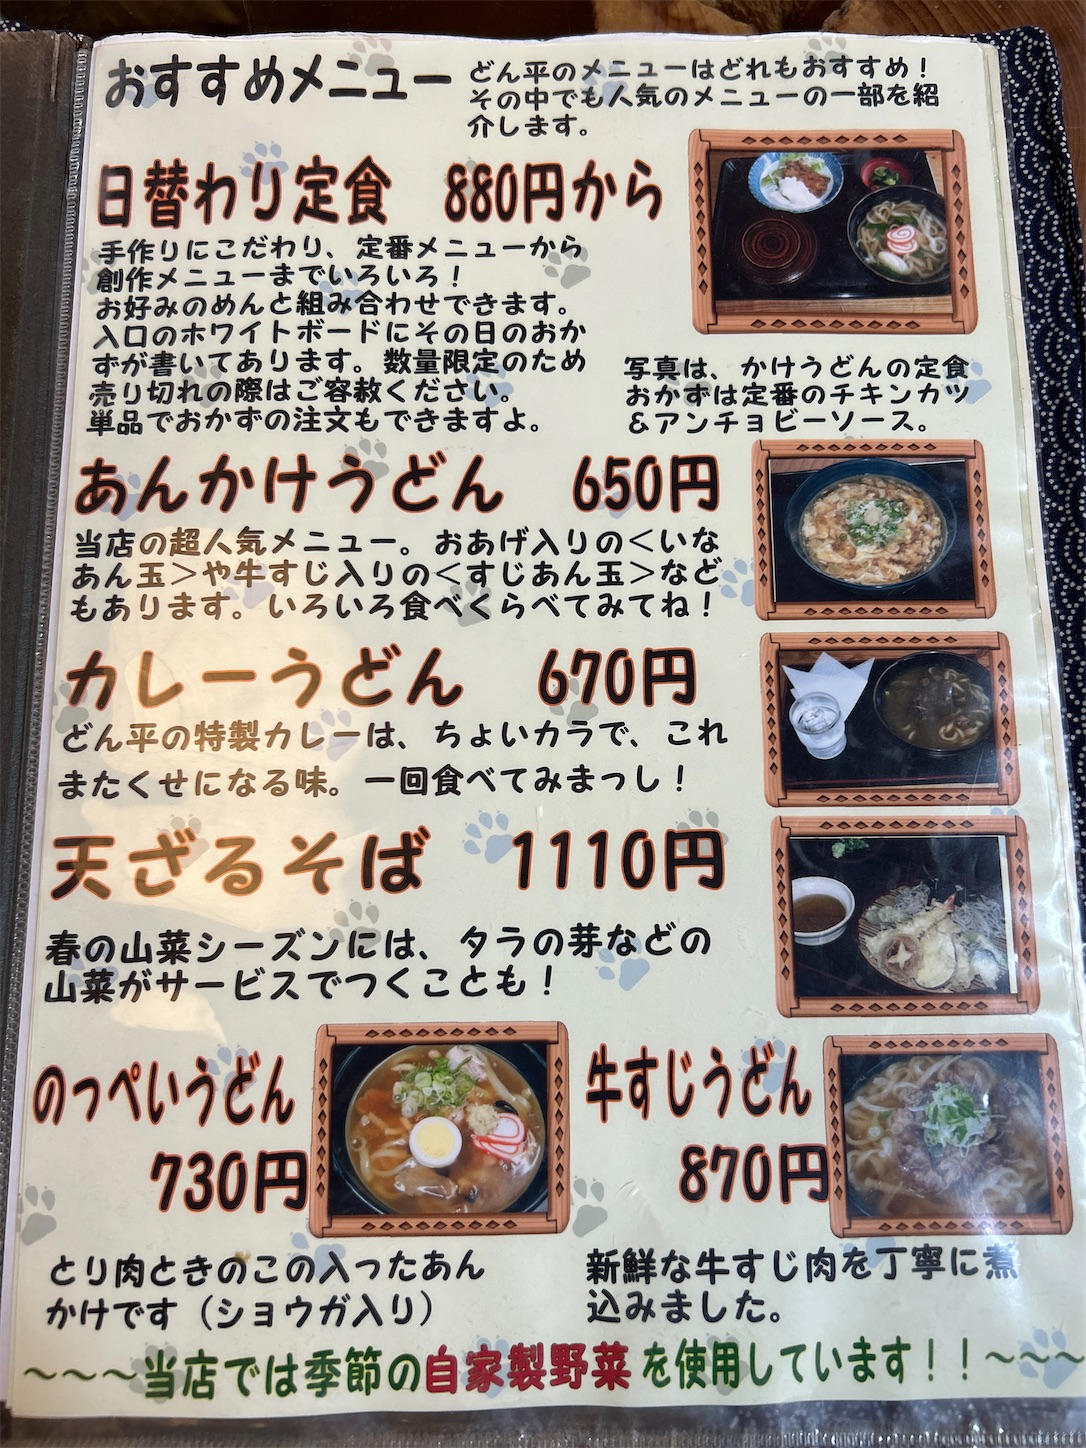 おすすめメニュー
どん平のメニューはどれもおすすめ！
その中でも人気のメニューの一部を紹
介します。
日替わり定食　880円から
手作りにこだわり、定番メニューから
創作メニューまでいろいろ！
お好みのめんと組み合わせできます。
入口のホワイトボードにその日のおか
ずが書いてあります。数量限定のため
売り切れの際はご容赦ください。
単品でおかずの注文もできますよ。
写真は、かけうどんの定食
おかずは定番のチキンカツ
＆アンチョビーソース。
あんかけうどん　650円
当店の超人気メニュー。おあげ入りの＜いな
あん玉＞や牛すじ入りの＜すじあん玉＞など
もあります。いろいろ食べくらべてみてね！
カレーうどん　670円
どん平の特製カレーは、ちょいカラで、これ
またくせになる味。一回食べてみまっし！
天ざるそば　1110円
春の山菜シーズンには、タラの芽などの
山菜がサービスでつくことも！
のっぺいうどん
730円
とり肉ときのこの入ったあん
かけです（ショウガ入り）
牛すじうどん
870円
新鮮な牛すじ肉を丁寧に煮
込みました。
～～～当店では季節の自家製野菜を使用しています！！～～～